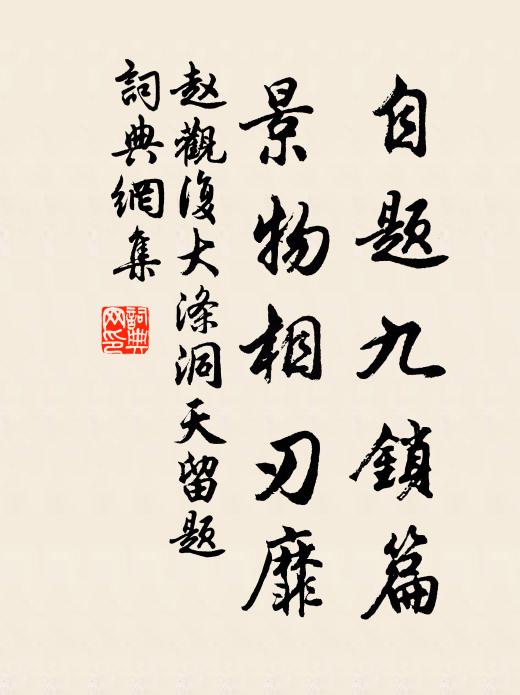 自题九鎖篇
景物相刃靡
赵觀復大滌洞天留题
詞典網集
詞典網印